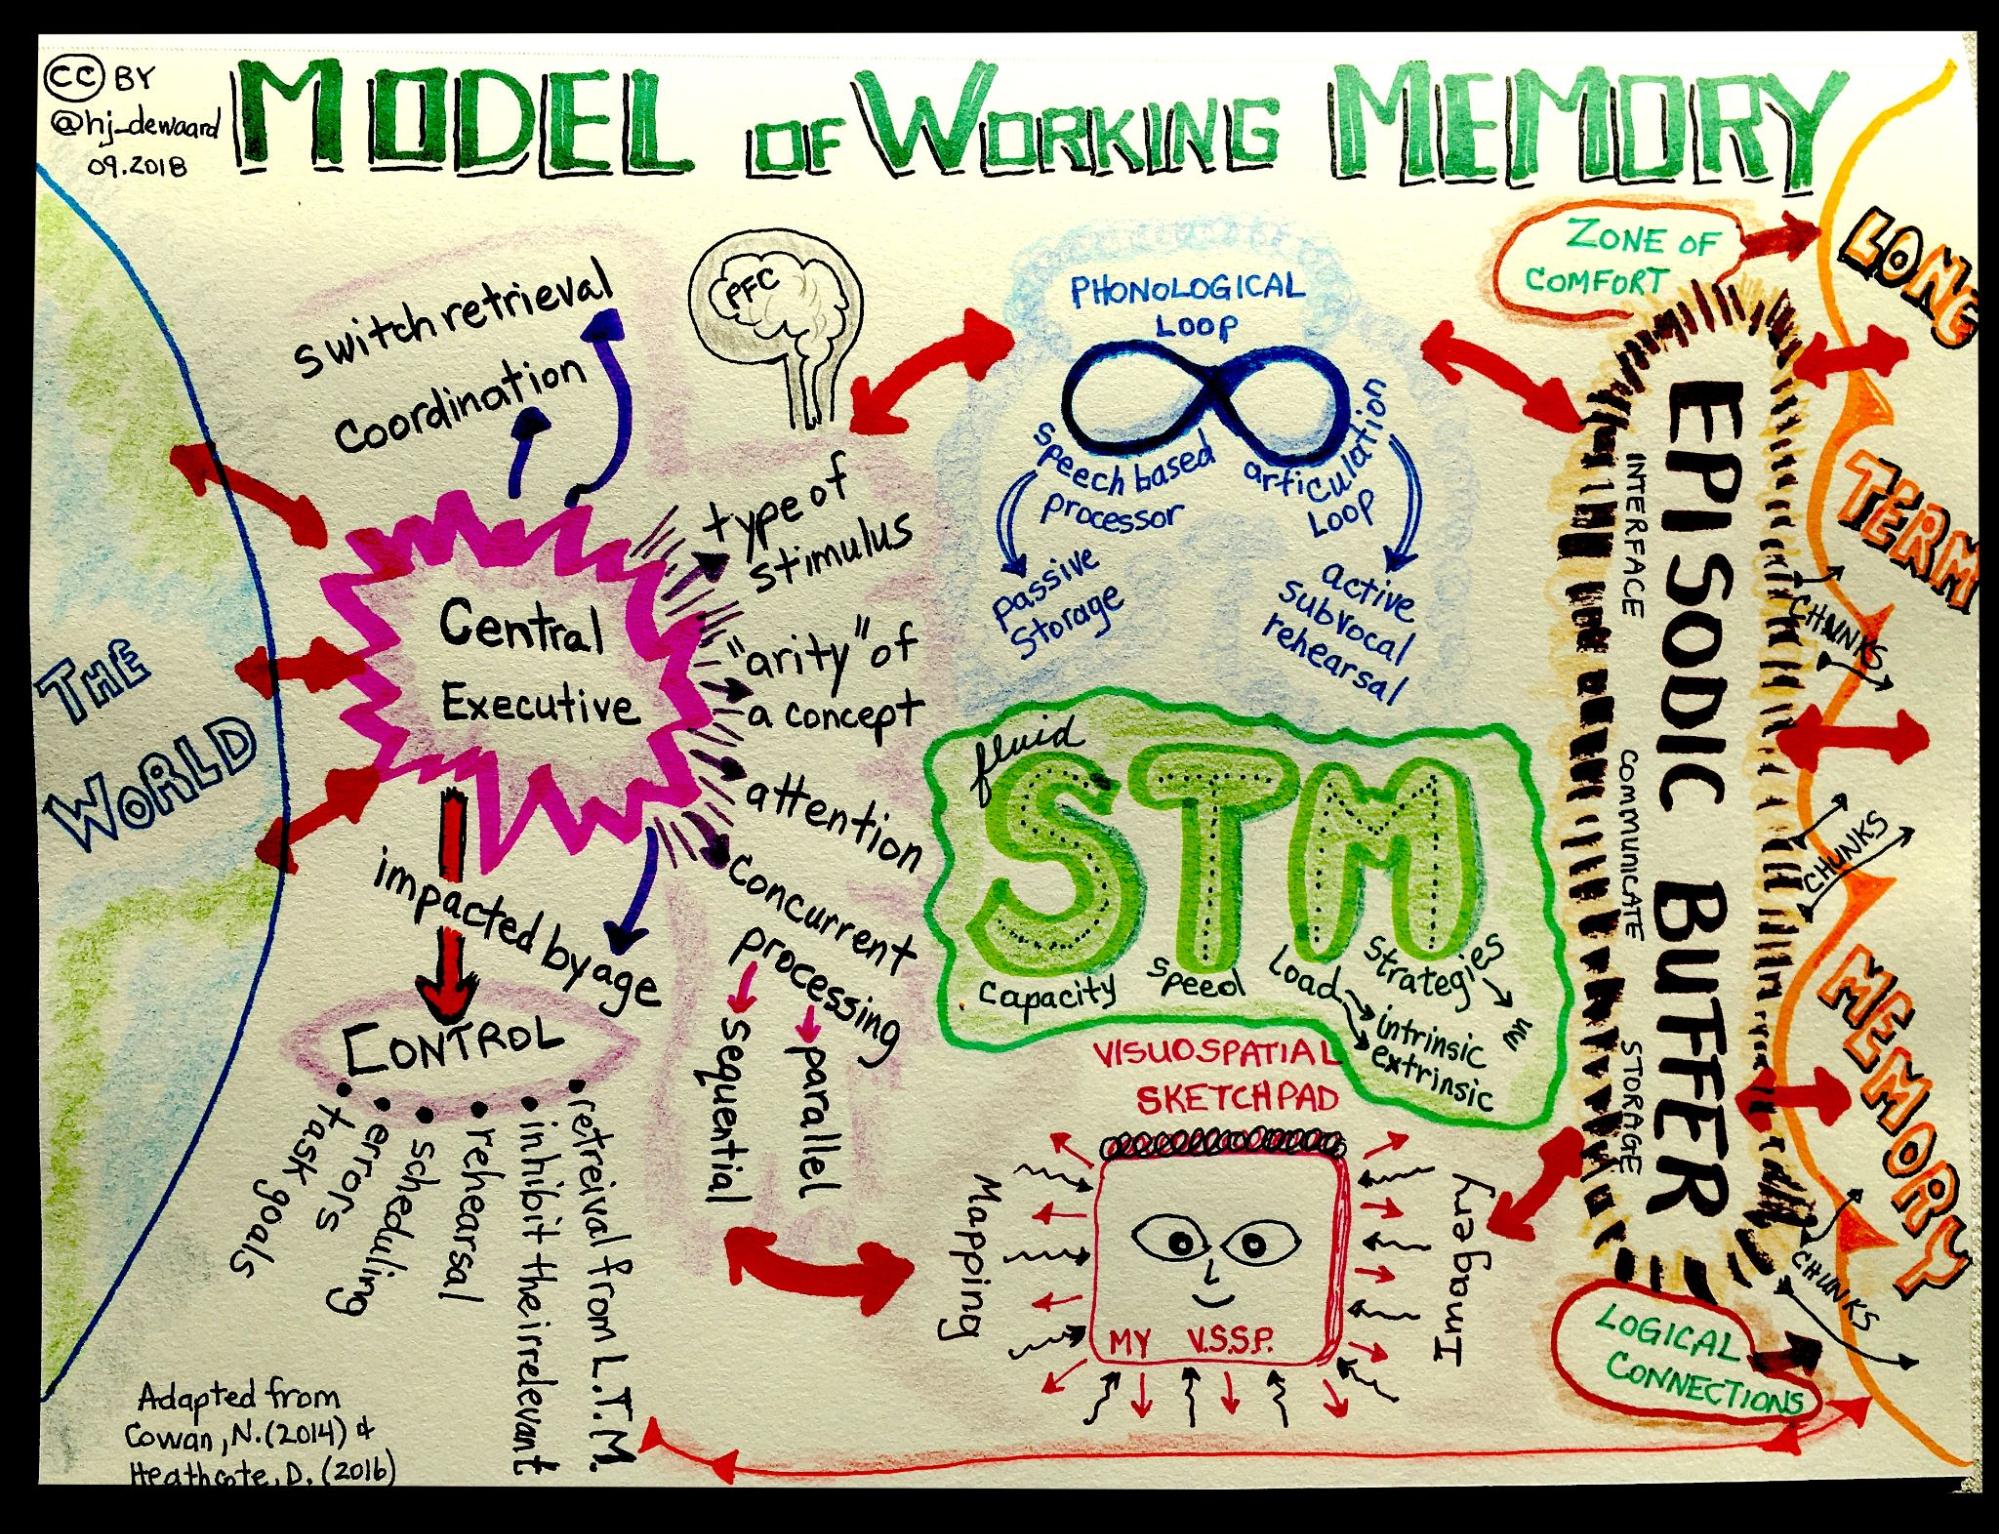 CC BY
@hj_dewaard
09.2018
MODEL OF WORKING MEMORY
THE
WORLD
switch retrieval
coordination
PFC
Central
Executive
type of
stimulus
"arity" of
a concept
attention
concurrent
processing
sequential
parallel
impacted by age
CONTROL
• task goals
• errors
• scheduling
• rehearsal
• inhibit the irrelevant
• retreival from L.T.M.
Adapted from
Cowan, N. (2014) &
Heathcote, D. (2016)
PHONOLOGICAL
LOOP
speech based
processor
articulation
LOOP
passive
storage
active
subvocal
rehearsal
fluid
STM
capacity
speed
load
strategies
intrinsic
extrinsic
VISUOSPATIAL
SKETCHPAD
Mapping
Imagery
MY V.S.S.P.
ZONE OF
COMFORT
EPISODIC BUFFER
INTERFACE
COMMUNICATE
STORAGE
CHUNKS
CHUNKS
CHUNKS
LOGICAL
CONNECTIONS
LONG
TERM
MEMORY